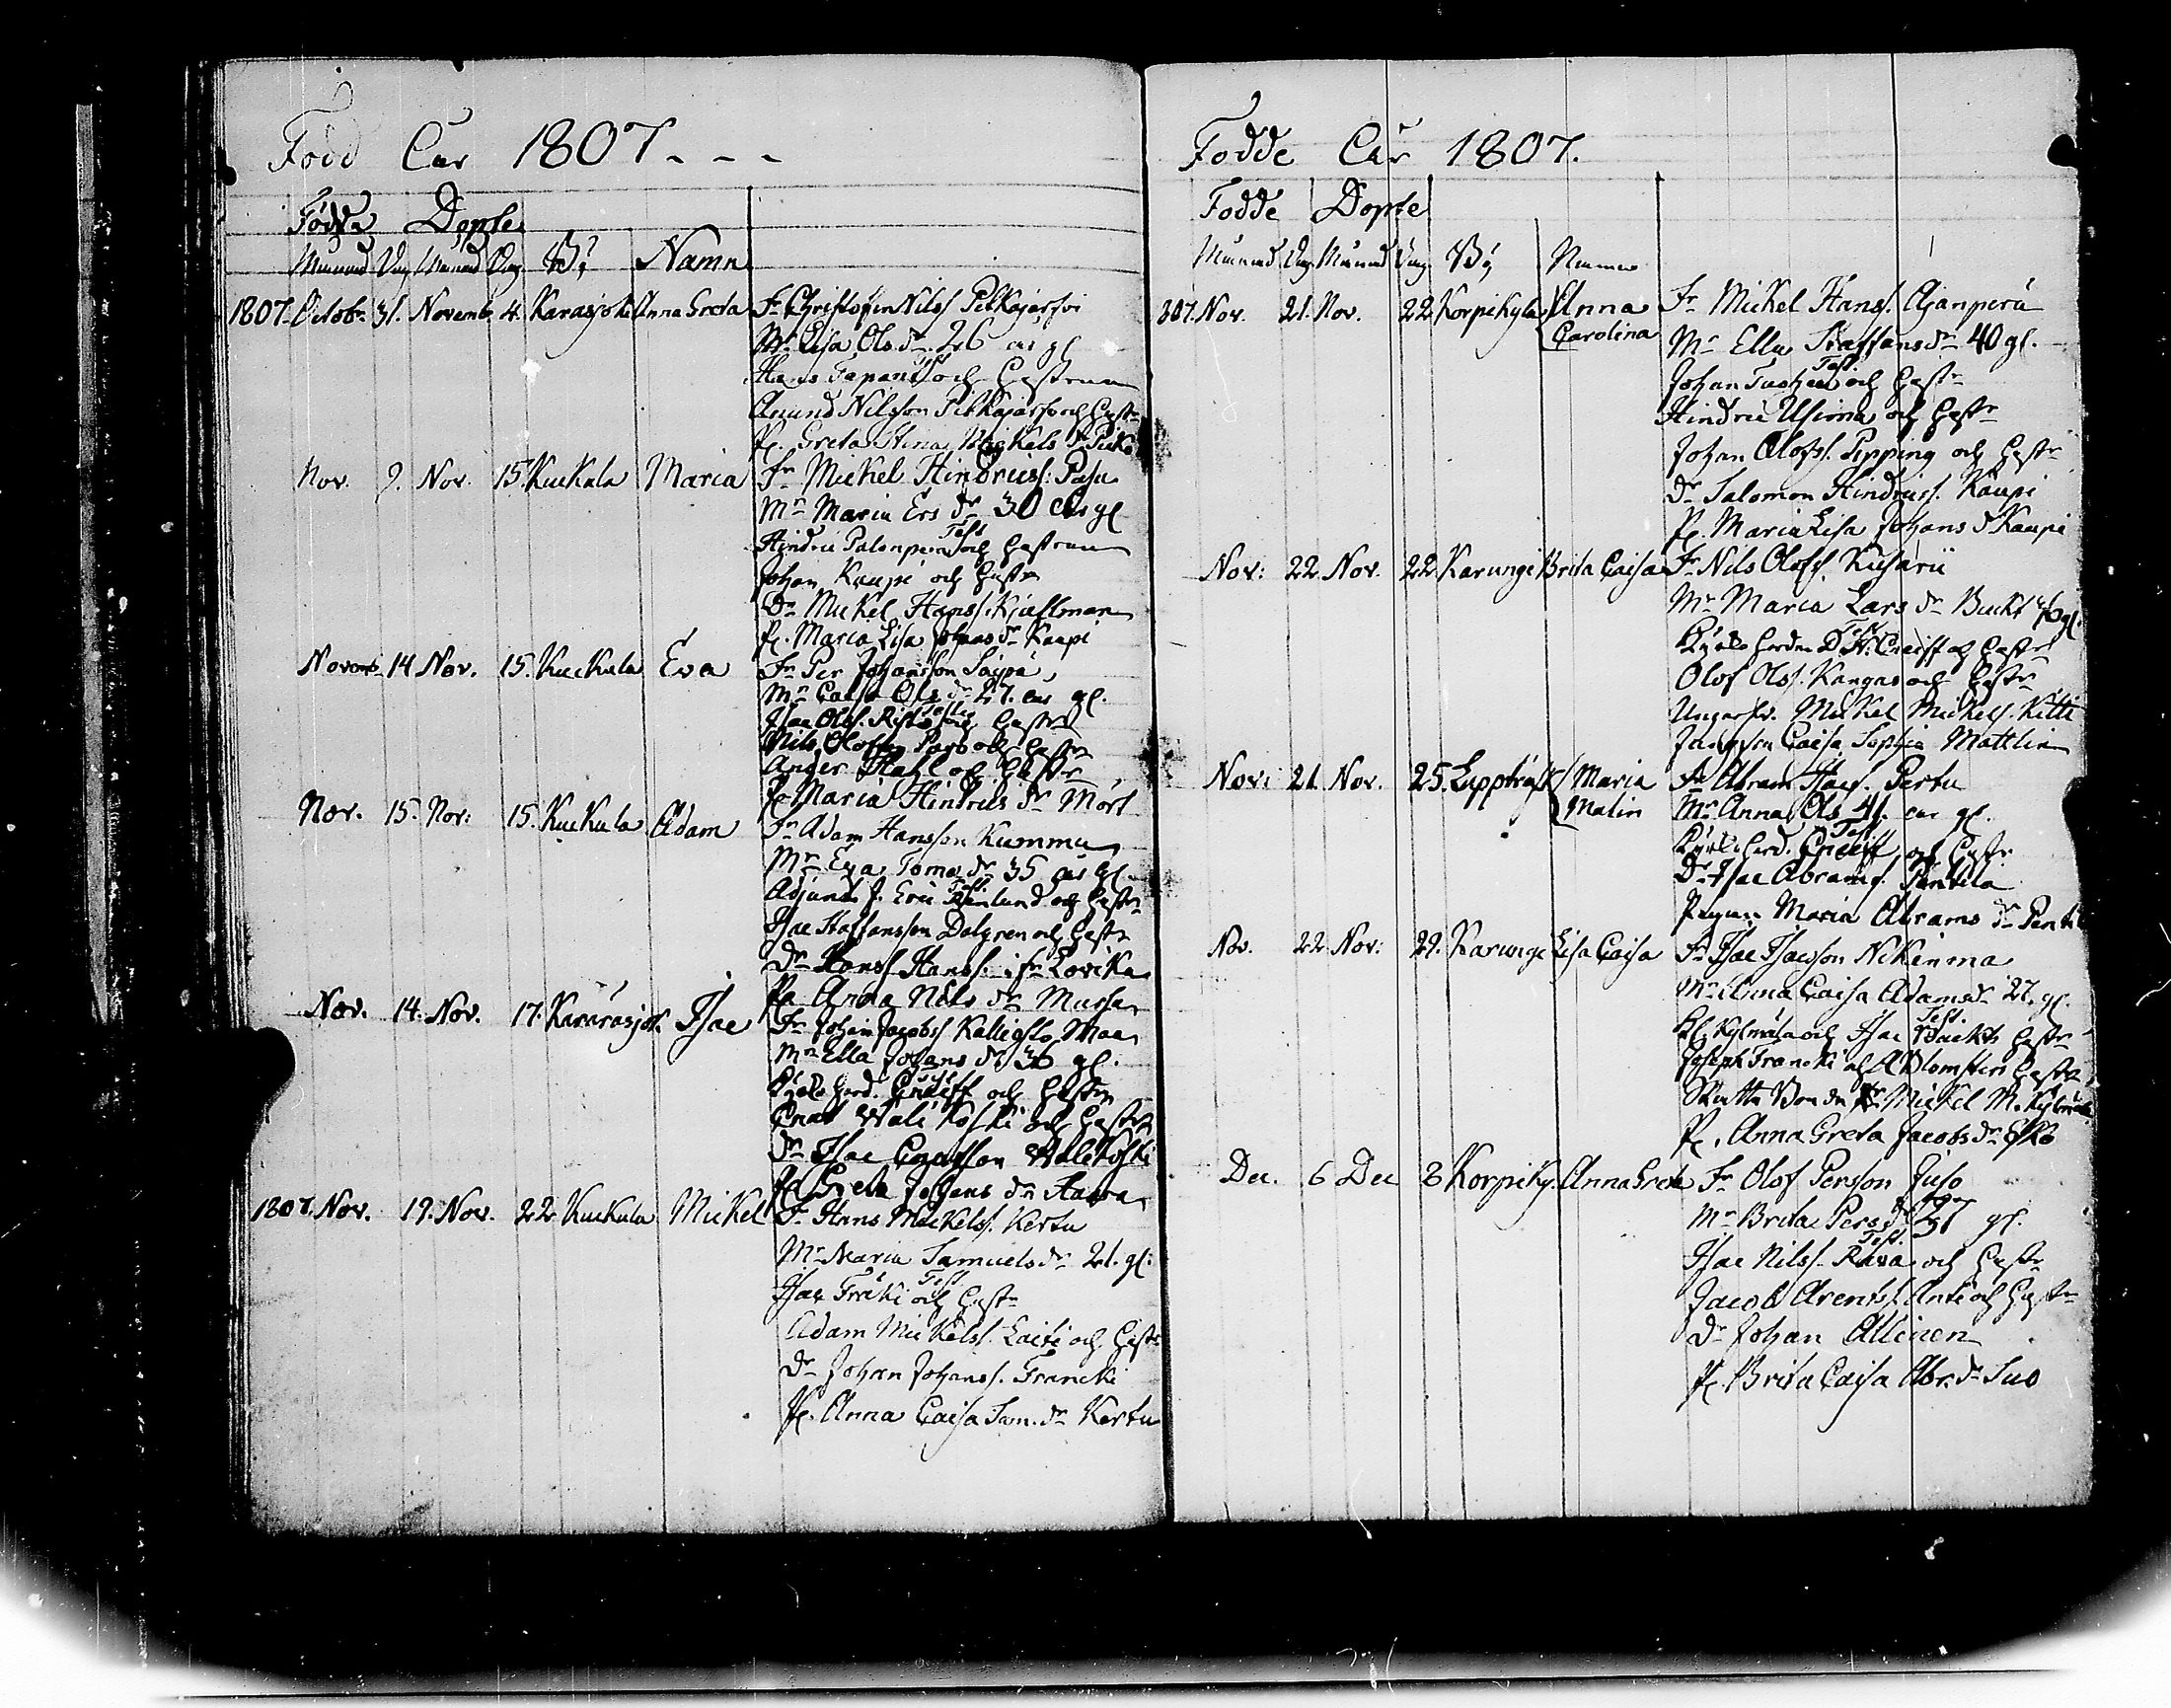 Född År 1807 - - -
Födde Döpte
Månad Dag Månad Dag By Namn
1807. Octobr. 31. Novemb. 4. Karasjoki Anna Greta Fr Christofer Nilss Pitkäjärfvi
Mr Lisa Ols dr 26 år gl
Test
Hans Tapani och Hustrun
Amund Nilsson Pitkäjärfvi och Hustr
P. Greta Stina Mickels dr Pitkä
Nov. 9. Nov. 15. Kuckula Maria Fr Mickel Hindricss. Paju
Mr Maria Ers dr 30 års gl
Test
Hindric Palonperä och Hustrun
Johan Kaupi och Hustr
Dr Mickel Hanss. Kjellman
P. Maria Lisa Johans dr Kaupi
Novemb. 14 Nov. 15. Kuckula Eva Fr Per Johansson
Mr Caisa Ols dr 27. års gl.
Isac Olss. Risto och Hustr
Nils Olofsson och Hustr
Ander Stahl och Hustr
P. Maria Hindrics dr Mört
Nov. 15. Nov: 15. Kuckula Adam Fr Adam Hansson Kummu
Mr Eva Toma dr 35 års gl.
Test.
Adjunct J. Eric och Hustr
Isac Staffansson Dalgren och Hustr
Dr Hans Hanss. i fr Lovika
Pa Anna Nils dr Mussa
Nov. 14. Nov. 17. Isac Fr Johan Jacobss Kalliosto Maa
Mr Ella Johans dr 36 gl.
Kyrko herd. Cneiff och Hustr
Cnut Walikoski och Hustr
Dr Isac Cnutsson Walikoski
Pa Greta Johans dr
1807. Nov. 19. Nov. 22 Kuckula Mickel Fr Hans Mickelss. Kertu
Mr Maria Samuels dr 21. gl:
Test
Isac Fräki och Hustr
Adam Mickelss. Laiti och Hustr
Dr Johan Johanss. Francki
P. Anna Caisa Sam. dr Kertu
Födde År 1807.
Födde Döpte
Månad Dag Månad Dag By Namn
807. Nov. 21. Nov. 22 Korpikylä Anna Carolina Fr Mickel Hanss. Ajanperä
Mr Ella Staffans dr 40 gl.
Test
Johan och Hustr
Hindric och Hustr
Johan Olofss. Pipping och Hustr
Dr Salomon Hindricss. Kaupi
P. Maria Lisa Johans d Kaupi
Nov: 22. Nov. 22 Karungi Brita Caisa Fr Nils Olofss.
Mr Maria Lars dr Buckt gl.
Kyrko herden D. H. Cneiff och Hustr
Olof Olss. Kangas och Hustr
Ungar fr. Mickel Mickelss. Kitti
Jungfrun Caisa Sophia Mattlin
Nov: 21. Nov. 25. Lyppträsk Maria Malin Fr Abram Isacs. Pertu
Mr Anna Ols 41. års gl.
Test
Kyrko herd. Cneiff och Hustr
Dr Isac Abramss. Pentila
Pigan Maria Abrams dr Penti
Nov. 22 Nov: 29. Karungi Lisa Caisa Fr Isac Isacsson Nikinma
Mr Anna Caisa Adams dr 27. gl.
Test.
Kl. Kylmäla och Isac Buckts Hustr
Joseph Francki och A Blomsters Hustr
Skutts Bonden Mickel M. Kylmäla
P. Anna Greta Jacobs dr Esko
Dec. 6 Dec 8 Korpiky. Anna Greta Fr Olof Persson Juso
Mr Brita Pers dr 37 gl.
Test.
Isac Nilss. Rava och Hustr
Jacob Arentss. Anti och Hustr
Dr Johan Allinen
P. Brita Caisa Abr. dr Suo